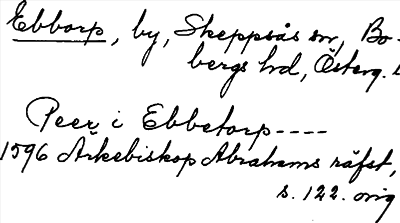 Ebbarp, by, Skeppsås sn, Bo-
bergs hd, Österg.
Peer i Ebbetorp----
1596 Ärkebiskop Abrahams räfst,
s. 122. orig